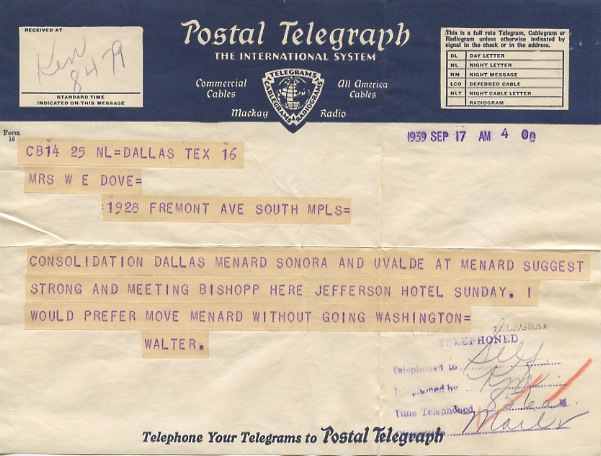 RECEIVED AT
Ken
8479
STANDARD TIME
INDICATED ON THIS MESSAGE
Postal Telegraph
THE INTERNATIONAL SYSTEM
Commercial Cables
All America Cables
TELEGRAMS
CABLEGRAMS
RADIOGRAMS
Mackay Radio
This is a full rate Telegram, Cablegram or
Radiogram unless otherwise indicated by
signal in the check or in the address.
DL DAY LETTER
NL NIGHT LETTER
NM NIGHT MESSAGE
LCO DEFERRED CABLE
NLT NIGHT CABLE LETTER
RADIOGRAM
Form
16
1939 SEP 17 AM 4 00
CB14 25 NL=DALLAS TEX 16
MRS W E DOVE=
1928 FREMONT AVE SOUTH MPLS=
CONSOLIDATION DALLAS MENARD SONORA AND UVALDE AT MENARD SUGGEST
STRONG AND MEETING BISHOPP HERE JEFFERSON HOTEL SUNDAY. I
WOULD PREFER MOVE MENARD WITHOUT GOING WASHINGTON=
WALTER.
TELEPHONED
Telephoned to Self
Telephoned by
Time Telephoned
Mailed
Telephone Your Telegrams to Postal Telegraph